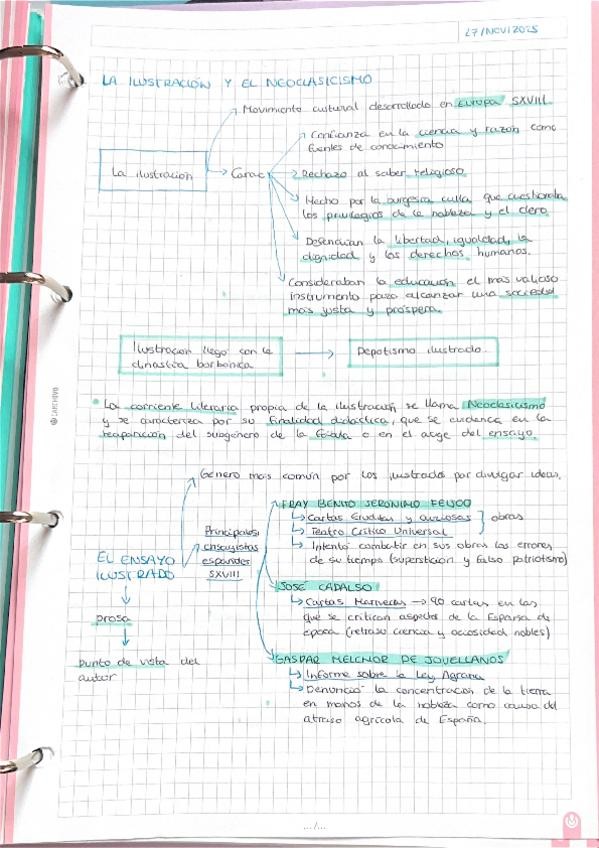 27/NOV/2025
LA ILUSTRACIÓN Y EL NEOCLASICISMO
Movimiento cultural desarrollado en Europa SXVIII.
La ilustración
Carac
Confianza en la ciencia y razón como
fuentes de conocimiento
Rechazo al saber religioso.
Hecho por la burgesia culta que cuestionaba
los privilegios de la nobleza y el clero.
Defendian la libertad, igualdad, la
dignidad y los derechos humanos.
Consideraban la educación el mas valioso
instrumento para alcanzar una sociedad
mas justa y próspera.
Ilustracion llego con la
dinastia borbonica
Depotismo ilustrado.
La corriente literaria propia de la ilustración se llama Neoclasicismo
y se caracteriza por su finalidad didactica, que se evidencia en la
reaparición del subgénero de la fábula o en el auge del ensayo.
Género mas común por los ilustrados por divulgar ideas.
EL ENSAYO
ILUSTRADO
prosa
punto de vista del
autor
Principales
ensayistas
españoles
SXVIII
FRAY BENITO JERONIMO FEIJOO
Cartas Eruditas y curiosas
Teatro Crítico Universal
obras
Intentó combatir en sus obras los errores
de su tiempo (supersticion y falso patriotismo)
JOSÉ CADALSO
Cartas Marruecas → 90 cartas en las
que se critican aspectos de la España de
época (retraso ciencia y ociosidad nobles)
GASPAR MELCHOR DE JOVELLANOS
Informe sobre la Ley Agraria
Denunció la concentracion de la tierra
en manos de la nobleza como causa del
atraso agrícola de España.
.../...